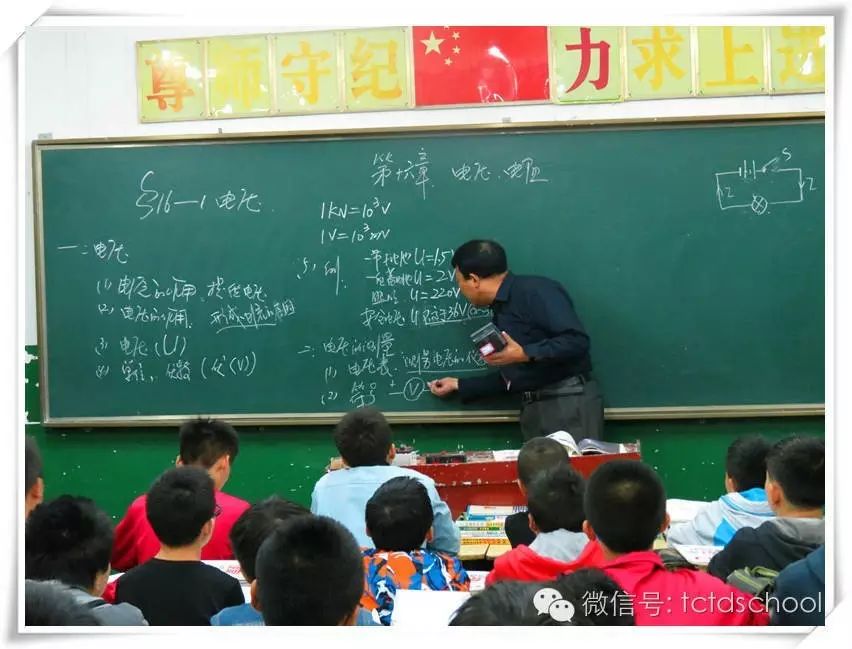 尊师守纪
力求上进
§16—1 电压
第十六章 电压、电阻
S
I
I
一、电压
(1) 电压的作用:提供电压
(2) 电压的作用. 形成电流的原因
(3) 电压 (U)
(4) 单位, 伏特 (伏)(V)
1kV=10³V
1V=10³mV
(5) 例
一节 U=1.5
U=2V
U=220V
U 36V
二、电压的测量
(1) 电压表:测量电压的仪
(2) 符号 + V
微信号: tctdschool